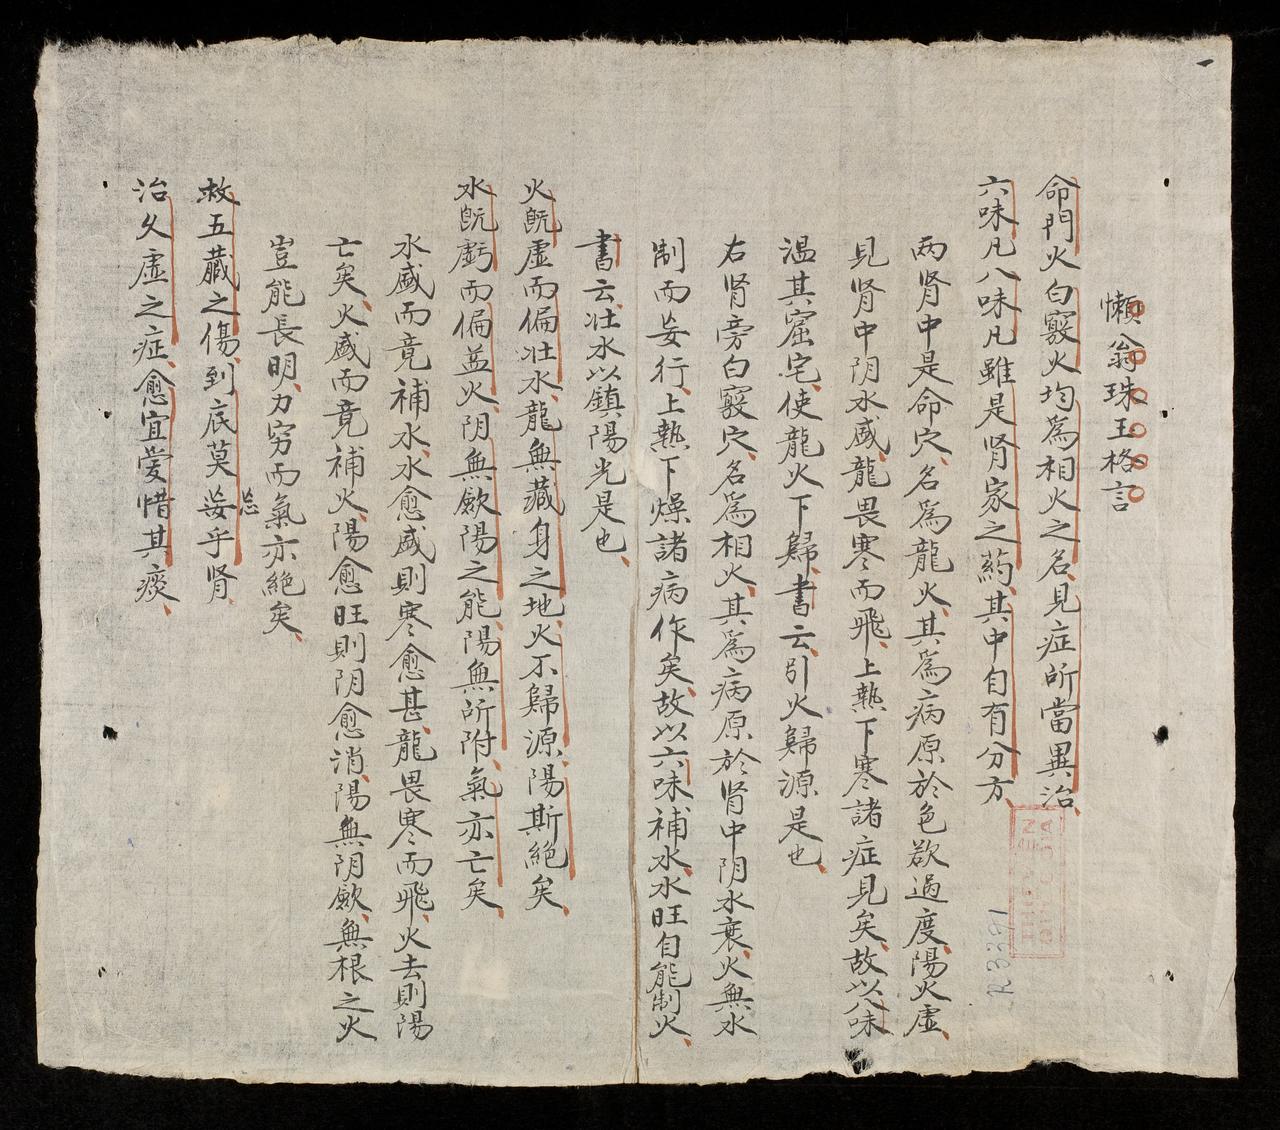 懶翁珠玉格言
命門火白竅火均爲相火之名見症所當異治
六味凡八味凡雖是肾家之葯其中自有分方
两肾中是命穴名爲龍火其爲病原於色欲過度陽火虚
見肾中阴水盛龍畏寒而飛上熱下寒諸症見矣故以八味
温其窟宅使龍火下歸書云引火歸源是也
右肾旁白竅穴名爲相火其爲病原於肾中阴水衰火無水
制而妄行上熱下燥諸病作矣故以六味補水水旺自能制火
書云壮水以鎮陽光是也
火既虚而偏壮水龍無藏身之地火不歸源陽斯絕矣
水既虧而偏益火阴無歛陽之能陽無所附氣亦亡矣
水盛而竟補水水愈盛則寒愈甚龍畏寒而飛火去則陽
亡矣火盛而竟補火陽愈旺則阴愈消陽無阴歛無根之火
豈能長明力穷而氣亦絕矣
救五藏之傷到底莫妄乎肾
忘
治久虚之症愈宜愛惜其痰
R.3381